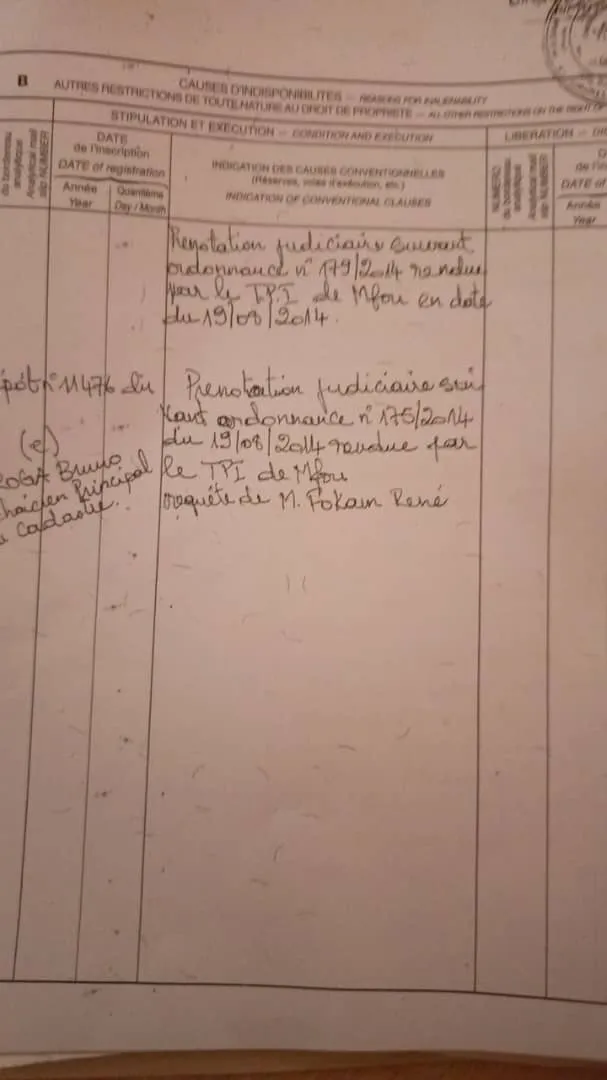 B
CAUSES D'INDISPONIBILITES — REASONS FOR INALIENABILITY
AUTRES RESTRICTIONS DE TOUTE NATURE AU DROIT DE PROPRIETE — ALL OTHER RESTRICTIONS ON THE RIGHT OF
STIPULATION ET EXECUTION — CONDITION AND EXECUTION
LIBERATION — DI
du bordereau
analytique
Analytical mail
slip NUMBER
DATE
de l'inscription
DATE of registration
Année
Year
Quantième
Day / Month
INDICATION DES CAUSES CONVENTIONNELLES
(Réserves, voies d'exécution, etc.)
INDICATION OF CONVENTIONAL CLAUSES
NUMERO
du bordereau
analytique
Analytical mail
slip NUMBER
DATE of
Année
Year
Prenotation judiciaire suivant
ordonnance n° 179/2014 rendue
par le T.P.I de Mfou en date
du 19/08/2014.
n° 11476 du
(e)
Bruno
Principal
Cadastre.
Prenotation judiciaire sui
vant ordonnance n° 175/2014
du 19/08/2014 rendue par
le TPI de Mfou
requête de M. Fokam René